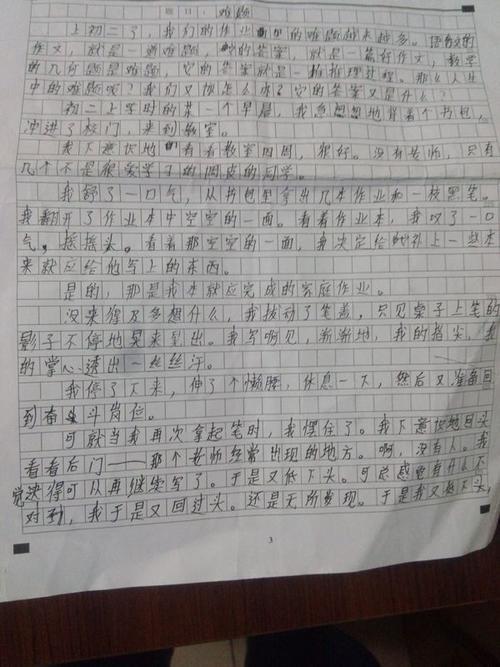 题目:难题
上初二了,我们的作业中的难题越来越多。语文的
作文,就是一道难题,它的答案,就是一篇好作文,数学
的几何题是难题,它的答案就是一推推理过程。那么人生
中的难题呢?我们又该怎么办?它的答案又是什么?
初二上学时的某一个早晨,我急忽忽地背着个书包,
冲进了校门,来到教室。
我下意识地看看教室四周,很好。没有老师,只有
几个不是很爱学习的调皮的同学。
我舒了一口气,从书包里拿出几本作业和一枝黑笔。
我翻开了作业本中空空的一面。看着作业本,我叹了一口
气,摇摇头。看着那空空的一面,我决定给他补上一些本
来就应给他写上的东西。
是的,那是我本就应完成的家庭作业。
没来得及多想什么,我拔动了笔盖,只见桌子上笔的
影子不停地晃来晃出。我写啊见,渐渐地,我的指尖,我
的掌心透出一丝丝汗。
我停了下来,伸了个懒腰,休息一下,然后又准备回
到奋斗岗位。
可就当我再次拿起笔时,我愣住了。我下意识地回头
看看后门——那个教师经常出现的地方。啊,没有人。我
觉得可以再继续写了。于是又低下头。可总感觉有什么不
对劲,我于是又回过头。还是无所发现。于是我又低下头,
3